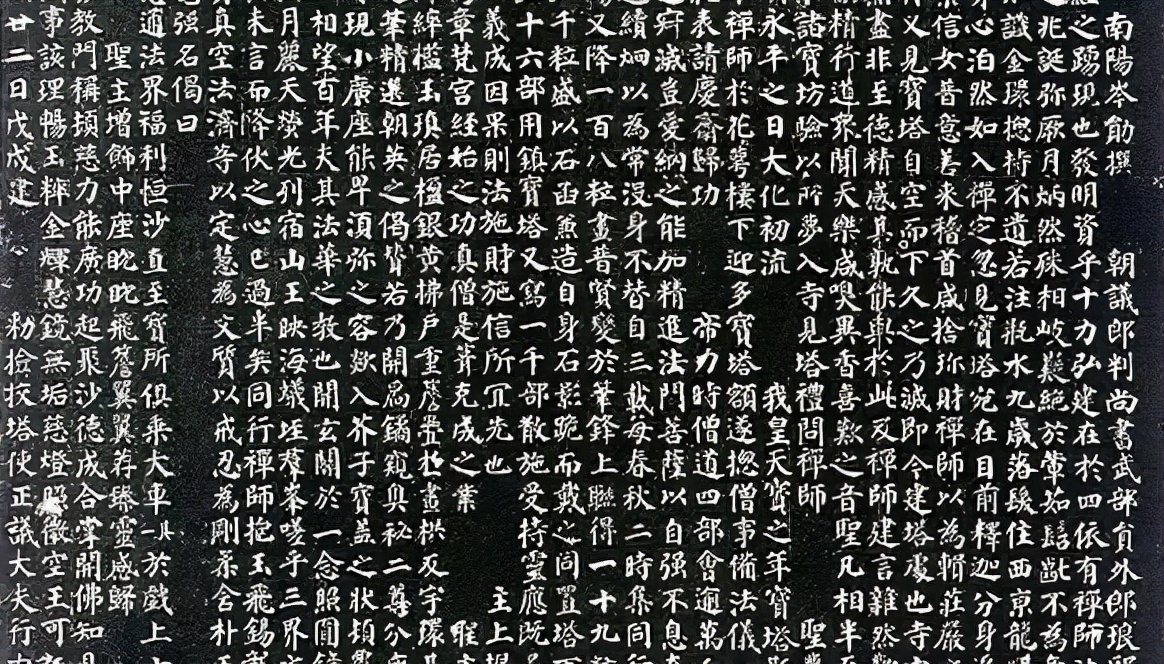 南陽岑勛撰 朝議郎判尚書武部員外郎琅
之踴現也發明資乎十力弘建在於四依有禪師
兆誕弥厥月炳然殊相岐嶷絕於葷茹髫齔不為
識金環揔持不遺若注瓶水九歲落髮住西京龍
心泊然如入禪定忽見寶塔宛在目前釋迦分身
信女普意善來稽首咸捨珎財禪師以為輯莊嚴
又見寶塔自空而下久之乃滅即今建塔處也寺
盡非至德精感其孰能與於此及禪師建言雜然
精行道衆聞天樂咸嗅異香喜歎之音聖凡相半
詣寶坊驗以所夢入寺見塔禮問禪師 聖夢
永平之日大化初流 我皇天寶之年寶塔
禪師於花萼樓下迎多寶塔額遂揔僧事備法儀
表請慶齋歸功 帝力時僧道四部會逾萬
穽滅豈愛納之能加精進法門菩薩以自强不息
續烱以為常没身不替自三載每春秋二時集同行
又降一百八粒畫普賢變於筆鋒上聯得一十九粒
千粒盛以石函兼造自身石影跪而戴之同置塔下
十六部用鎮寶塔又寫一千部散施受持靈應既
義成因果則法施財施信所冝先也 主上握
章梵宮經始之功真僧是葺克成之業 聖
綷檻玉瑱居楹銀黃拂戶重簷疊於畫栱反宇環
筆精選朝英之偈贊若乃開扃鐍窺奧秘二尊分座
現小廣座能卑須弥之容欻入芥子寶蓋之狀頓
和望百年夫其法華之教也開玄關於一念照圓
月麗天螢光列宿山王映海蟻垤羣峯嗟乎三界
未言而降伏之心已過半矣同行禪師抱玉飛錫
真空法濟等以定慧為文質以戒忍為剛柔含朴
强名偈曰
通法界福利恒沙直至寶所俱乘大車其一於戲上
聖主增飾中座眈眈飛簷翼翼荐臻靈感歸
教門稱頓慈力能廣功起聚沙德成合掌開佛知
事該理暢玉粹金輝慧鏡無垢慈燈照微空王可
廿二日戊戌建 勑撿挍塔使正議大夫行